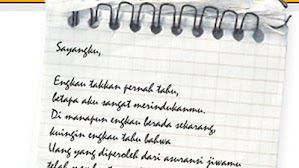 Sayangku,
Engkau takkan pernah tahu,
betapa aku sangat merindukanmu.
Di manapun engkau berada sekarang,
kuingin engkau tahu bahwa
Uang yang diperoleh dari asuransi jiwamu
telah